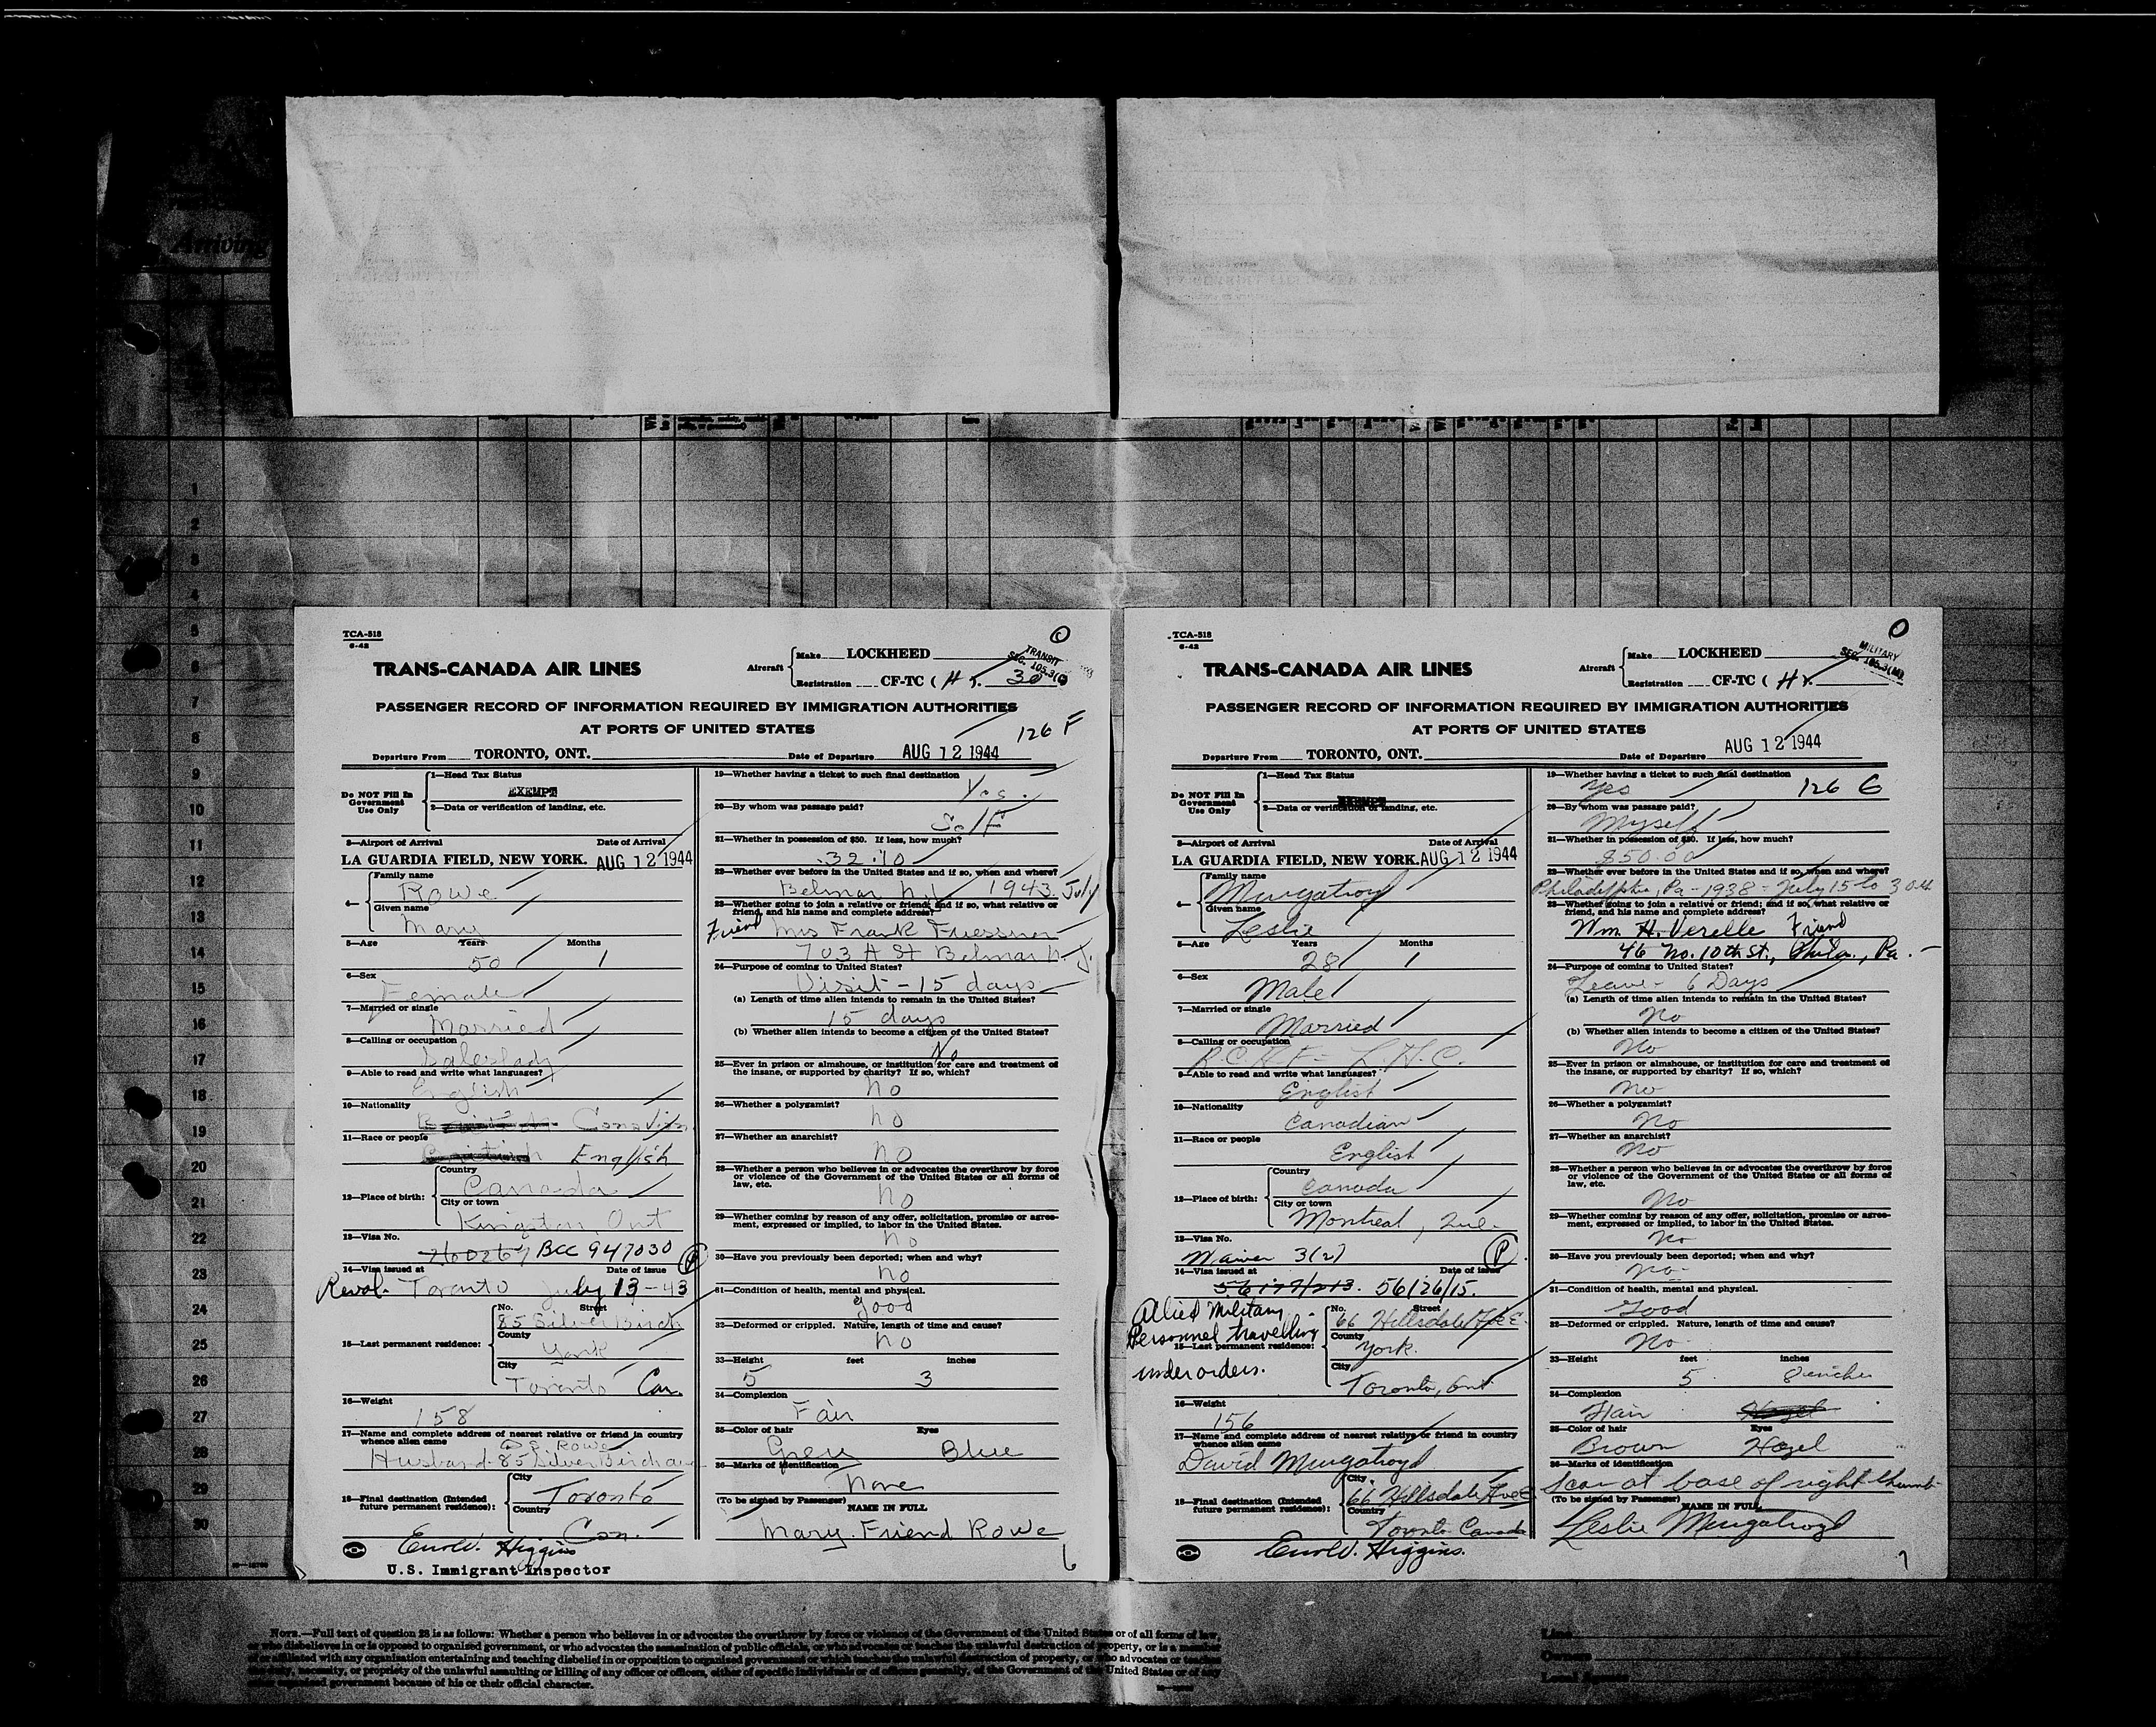 Arriving
1
2
3
4
5
6
7
8
9
10
11
12
13
14
15
16
17
18
19
20
21
22
23
24
25
26
27
28
29
30
TCA-518
6-42
TRANS-CANADA AIR LINES
Aircraft
Make LOCKHEED
Registration CF-TC ( H ). 30
TRANSIT
SEC. 105.3(C)
PASSENGER RECORD OF INFORMATION REQUIRED BY IMMIGRATION AUTHORITIES
AT PORTS OF UNITED STATES
126 F
Departure From TORONTO, ONT. Date of Departure AUG 12 1944
Do NOT Fill In Government Use Only
1—Head Tax Status
EXEMPT
2—Data or verification of landing, etc.
3—Airport of Arrival Date of Arrival
LA GUARDIA FIELD, NEW YORK. AUG 12 1944
4— Family name
Rowe
Given name
Mary
5—Age Years Months
50 1
6—Sex
Female
7—Married or single
Married
8—Calling or occupation
Saleslady
9—Able to read and write what languages?
English
10—Nationality
Canadian
11—Race or people
English
12—Place of birth: Country
Canada
City or town
Kingston Ont
13—Visa No.
760267 BCC 947030 (P)
14—Visa issued at Date of issue
Reval. Toronto July 13-43
15—Last permanent residence: No. Street
85 Silver Birch
County
York
City
Toronto Can.
16—Weight
158
17—Name and complete address of nearest relative or friend in country
whence alien came
Rowe
Husband 85 Silver Birch av
18—Final destination (Intended future permanent residence): City
Toronto
Country
Can.
Enold. Higgins
U.S. Immigrant Inspector
19—Whether having a ticket to such final destination
Yes.
20—By whom was passage paid?
Self
21—Whether in possession of $50. If less, how much?
32.10
22—Whether ever before in the United States and if so, when and where?
Belmar N.J. 1943 July
23—Whether going to join a relative or friend; and if so, what relative or
friend, and his name and complete address?
Friend Mrs Frank
703 A St Belmar N.J.
24—Purpose of coming to United States?
Visit - 15 days
(a) Length of time alien intends to remain in the United States?
15 days
(b) Whether alien intends to become a citizen of the United States?
No
25—Ever in prison or almshouse, or institution for care and treatment of
the insane, or supported by charity? If so, which?
no
26—Whether a polygamist?
no
27—Whether an anarchist?
no
28—Whether a person who believes in or advocates the overthrow by force
or violence of the Government of the United States or all forms of
law, etc.
no
29—Whether coming by reason of any offer, solicitation, promise or agree-
ment, expressed or implied, to labor in the United States.
no
30—Have you previously been deported; when and why?
no
31—Condition of health, mental and physical.
good
32—Deformed or crippled. Nature, length of time and cause?
no
33—Height feet inches
5 3
34—Complexion
Fair
35—Color of hair Eyes
Grey Blue
36—Marks of identification
None
(To be signed by Passenger) NAME IN FULL
Mary Friend Rowe
6
TCA-518
6-42
TRANS-CANADA AIR LINES
Aircraft
Make LOCKHEED
Registration CF-TC ( H ).
MILITARY
SEC. 105.3(M)
PASSENGER RECORD OF INFORMATION REQUIRED BY IMMIGRATION AUTHORITIES
AT PORTS OF UNITED STATES
Departure From TORONTO, ONT. Date of Departure AUG 12 1944
Do NOT Fill In Government Use Only
1—Head Tax Status
EXEMPT
2—Data or verification of landing, etc.
3—Airport of Arrival Date of Arrival
LA GUARDIA FIELD, NEW YORK. AUG 12 1944
4— Family name
Murgatroyd
Given name
Leslie
5—Age Years Months
28 1
6—Sex
Male
7—Married or single
Married
8—Calling or occupation
R.C.A.F. - L.A.C.
9—Able to read and write what languages?
English
10—Nationality
Canadian
11—Race or people
English
12—Place of birth: Country
Canada
City or town
Montreal, Que.
13—Visa No.
Waiver 3(2) (P)
14—Visa issued at Date of issue
56177/213. 56126/15.
Allied Military
Personnel travelling
under orders.
15—Last permanent residence: No. Street
66 Hillsdale Ave E.
County
York.
City
Toronto, Ont
16—Weight
156
17—Name and complete address of nearest relative or friend in country
whence alien came
David Murgatroyd
18—Final destination (Intended future permanent residence): City
66 Hillsdale Ave E
Country
Toronto Canada
Enold. Higgins.
19—Whether having a ticket to such final destination
Yes 126 G
20—By whom was passage paid?
Myself
21—Whether in possession of $50. If less, how much?
$50.00
22—Whether ever before in the United States and if so, when and where?
Philadelphia, Pa - 1938 - July 15 to 30th
23—Whether going to join a relative or friend; and if so, what relative or
friend, and his name and complete address?
Wm. H. Verelle Friend
46 No. 10th St., Phila., Pa.
24—Purpose of coming to United States?
Leave - 6 Days
(a) Length of time alien intends to remain in the United States?
No
(b) Whether alien intends to become a citizen of the United States?
No
25—Ever in prison or almshouse, or institution for care and treatment of
the insane, or supported by charity? If so, which?
No
26—Whether a polygamist?
No
27—Whether an anarchist?
No
28—Whether a person who believes in or advocates the overthrow by force
or violence of the Government of the United States or all forms of
law, etc.
No
29—Whether coming by reason of any offer, solicitation, promise or agree-
ment, expressed or implied, to labor in the United States.
No
30—Have you previously been deported; when and why?
No
31—Condition of health, mental and physical.
Good
32—Deformed or crippled. Nature, length of time and cause?
No
33—Height feet inches
5 8 inches
34—Complexion
Fair Hazel
35—Color of hair Eyes
Brown Hazel
36—Marks of identification
Scar at base of right thumb
(To be signed by Passenger) NAME IN FULL
Leslie Murgatroyd
7
NOTE.—Full text of question 28 is as follows: Whether a person who believes in or advocates the overthrow by force or violence of the Government of the United States or of all forms of law,
or who disbelieves in or is opposed to organized government, or who advocates the assassination of public officials, or who advocates or teaches the unlawful destruction of property, or is a member
of or affiliated with any organization entertaining and teaching disbelief in or opposition to organized government or which teaches the unlawful destruction of property, or who advocates or teaches
the duty, necessity, or propriety of the unlawful assaulting or killing of any officer or officers, either of specific individuals or of officers generally, of the Government of the United States or of any
other organized government because of his or their official character.
Line
Owners
Local Agents